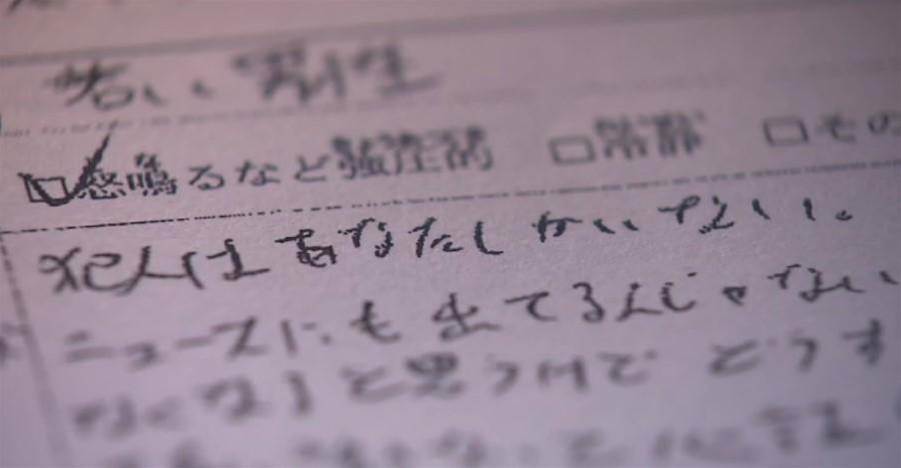 若い男性
☑怒鳴るなど強圧的 □冷静 □その
犯人はあなたしかいない。
ニュースにも出てるんじゃない
なくなると思うけど どうす